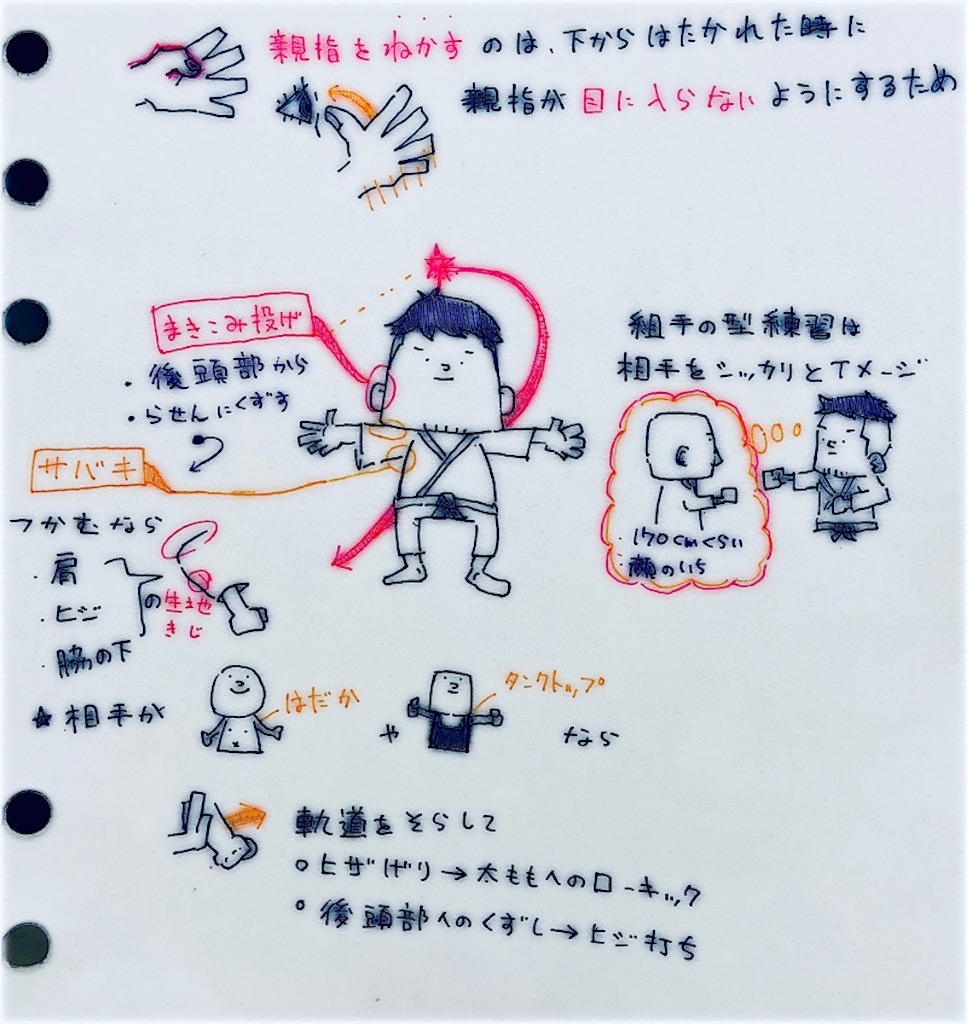 親指をねかすのは、下からはたかれた時に
親指が目に入らないようにするため
まきこみ投げ
・後頭部から
・らせんにくずす
組手の型練習は
相手をシッカリとイメージ
・170cmくらい
・顔のいち
サバキ
つかむなら
・肩
・ヒジ
・脇の下
の生地
きじ
☆相手が
はだか
や
タンクトップ
なら
軌道をそらして
○ヒザげり→太ももへのローキック
○後頭部へのくずし→ヒジ打ち